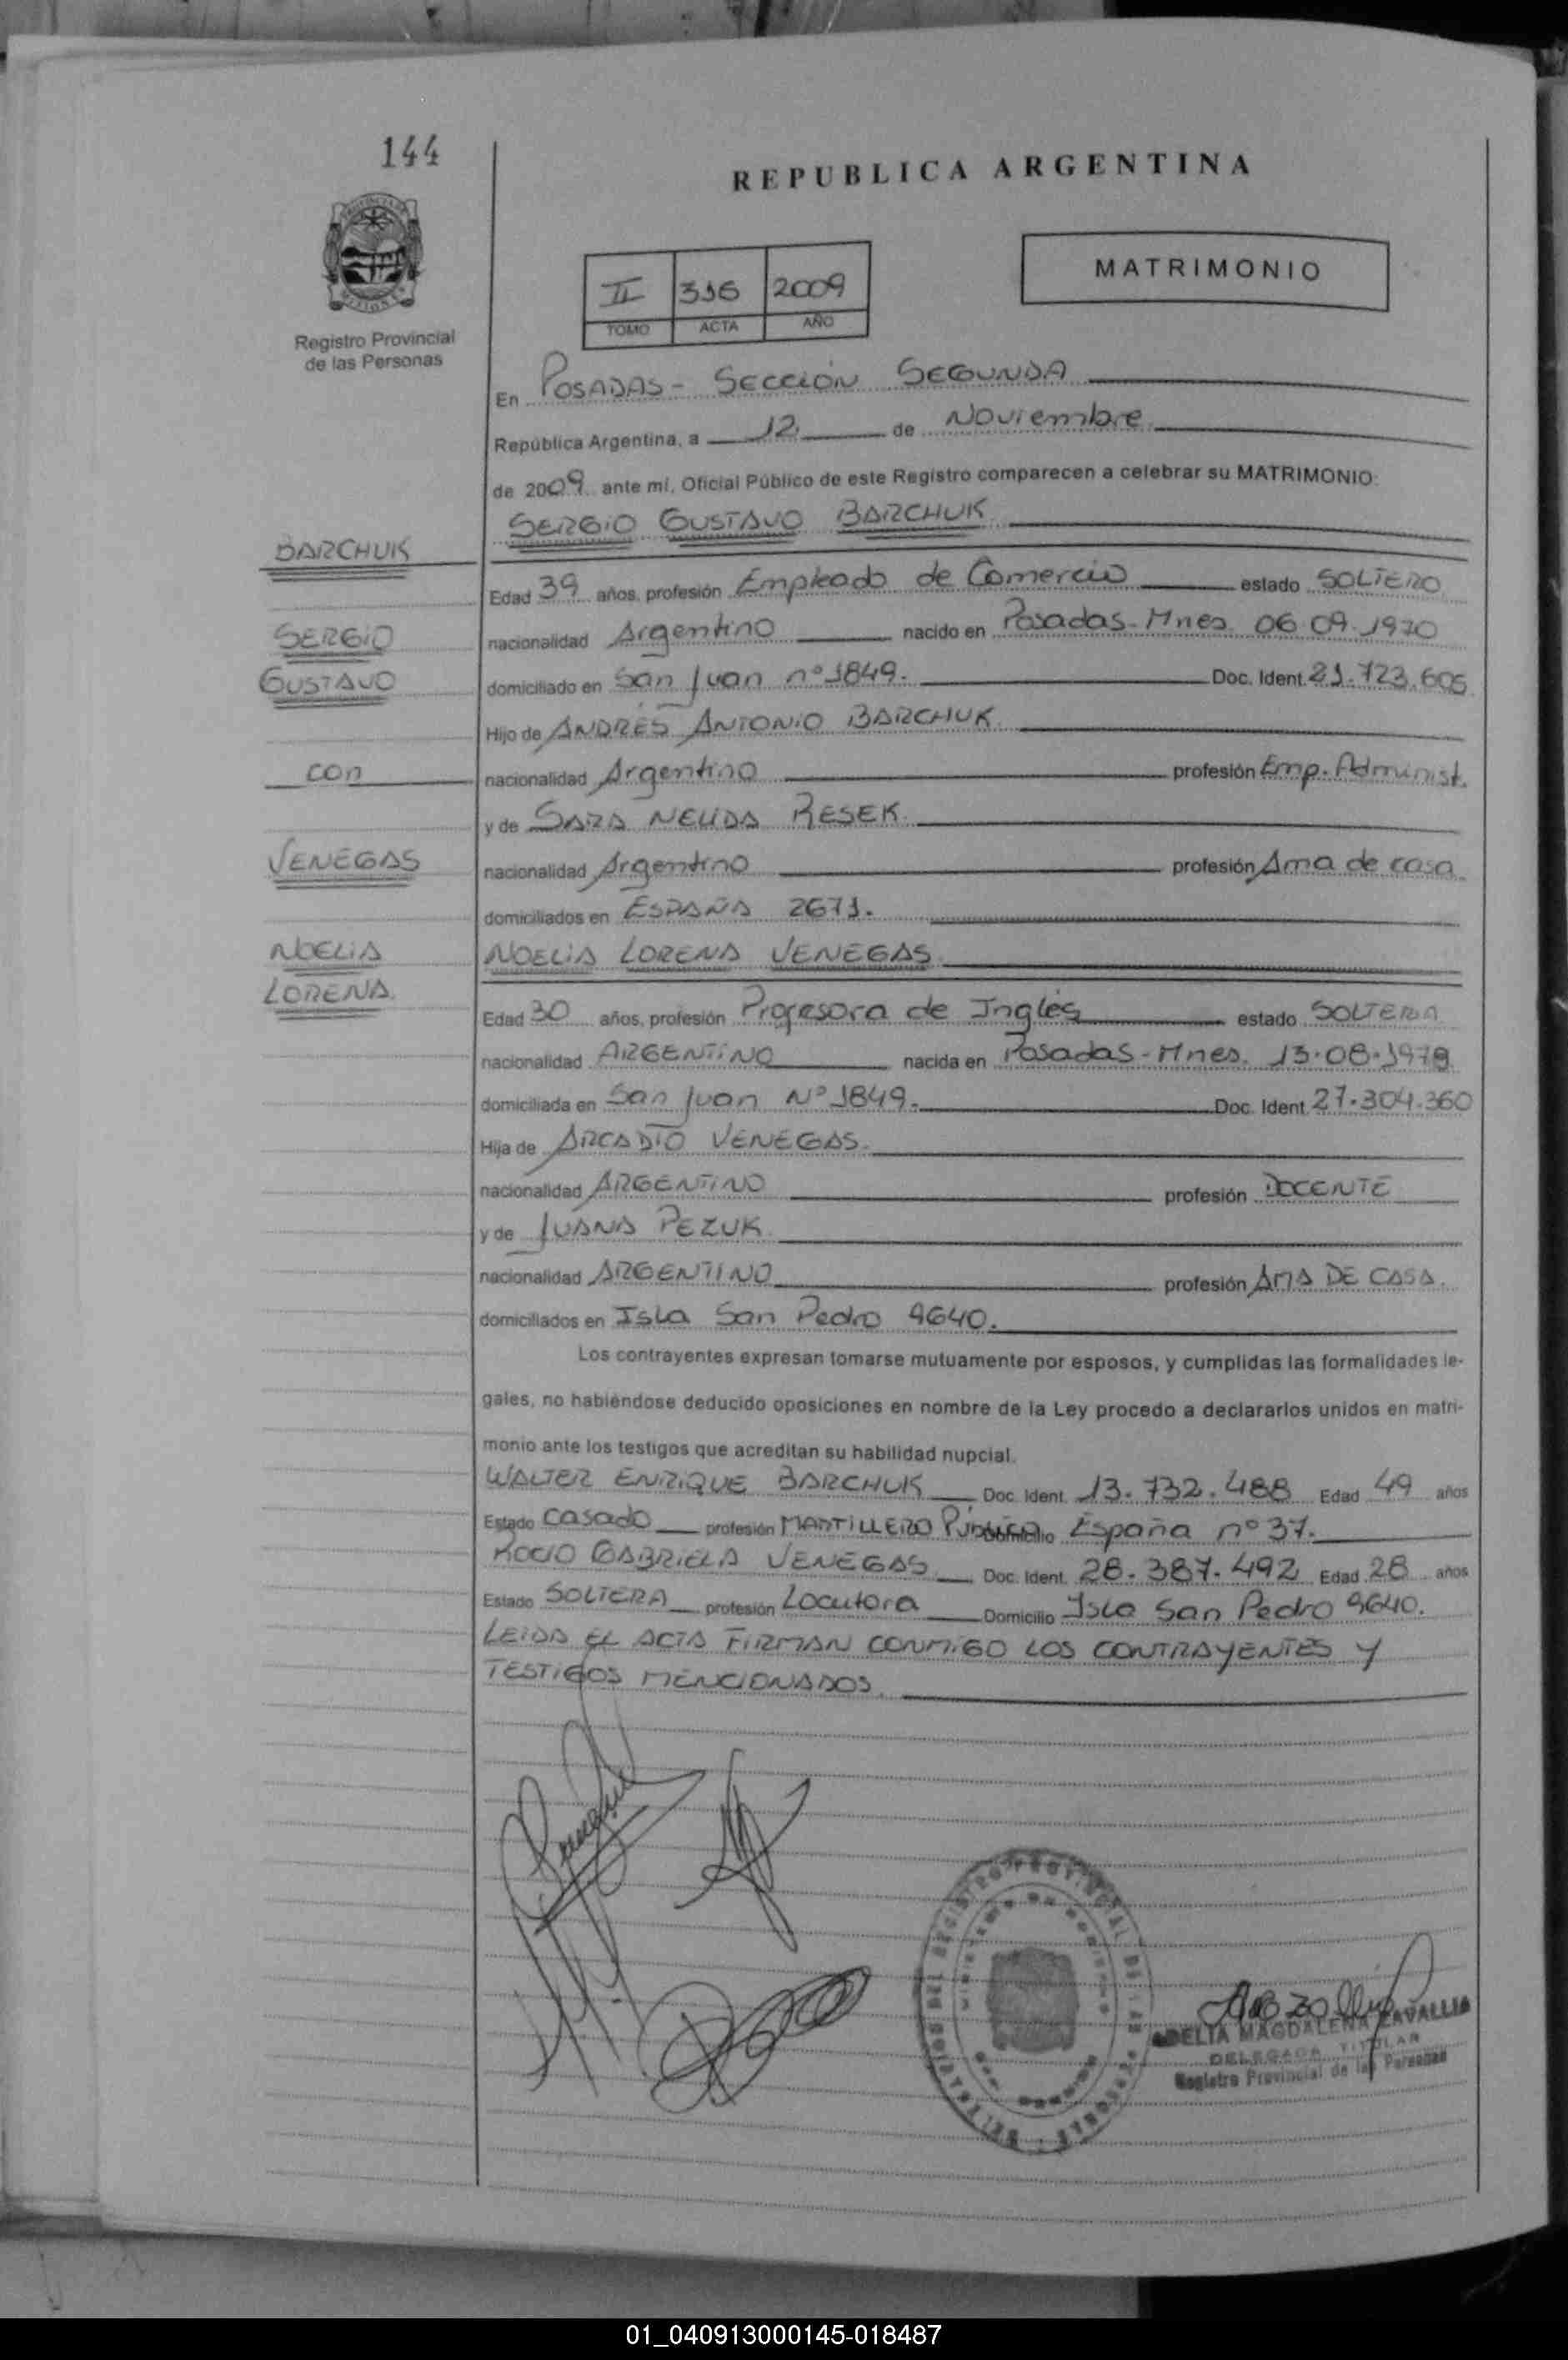 144
REPUBLICA ARGENTINA
MATRIMONIO
II 316 2009
TOMO ACTA AÑO
Registro Provincial
de las Personas
En POSADAS - SECCIÓN SEGUNDA
República Argentina, a 12 de Noviembre
de 2009 ante mí, Oficial Público de este Registro comparecen a celebrar su MATRIMONIO:
SERGIO GUSTAVO BARCHUK
BARCHUK
Edad 39 años, profesión Empleado de Comercio estado SOLTERO
SERGIO
nacionalidad Argentino nacido en Posadas-Mnes. 06.09.1970
GUSTAVO
domiciliado en San Juan nº 1849. Doc. Ident. 21.723.605
Hijo de ANDRÉS ANTONIO BARCHUK
con
nacionalidad Argentino profesión Emp. Administ.
y de SARA NELIDA RESEK
VENEGAS
nacionalidad Argentino profesión Ama de casa.
domiciliados en ESPAÑA 2671.
NOELIA
NOELIA LORENA VENEGAS
LORENA
Edad 30 años, profesión Profesora de Inglés estado SOLTERA
nacionalidad ARGENTINO nacida en Posadas-Mnes. 13.08.1979
domiciliada en San Juan Nº 1849. Doc. Ident. 27.304.360
Hija de ARCADIO VENEGAS.
nacionalidad ARGENTINO profesión DOCENTE
y de JUANA PEZUK
nacionalidad ARGENTINO profesión AMA DE CASA.
domiciliados en Isla San Pedro 9640.
Los contrayentes expresan tomarse mutuamente por esposos, y cumplidas las formalidades le-
gales, no habiéndose deducido oposiciones en nombre de la Ley procedo a declararlos unidos en matri-
monio ante los testigos que acreditan su habilidad nupcial.
WALTER ENRIQUE BARCHUK Doc. Ident. 13.732.488 Edad 49 años
Estado casado profesión MARTILLERO PÚBLICO Domicilio España nº 37.
ROCIO GABRIELA VENEGAS Doc. Ident. 28.387.492 Edad 28 años
Estado SOLTERA profesión Locutora Domicilio Isla San Pedro 9640.
LEIDA EL ACTA FIRMAN CONMIGO LOS CONTRAYENTES Y
TESTIGOS MENCIONADOS.
DELIA MAGDALENA ZAVALLIA
DELEGADA TITULAR
Registro Provincial de las Personas
01_040913000145-018487